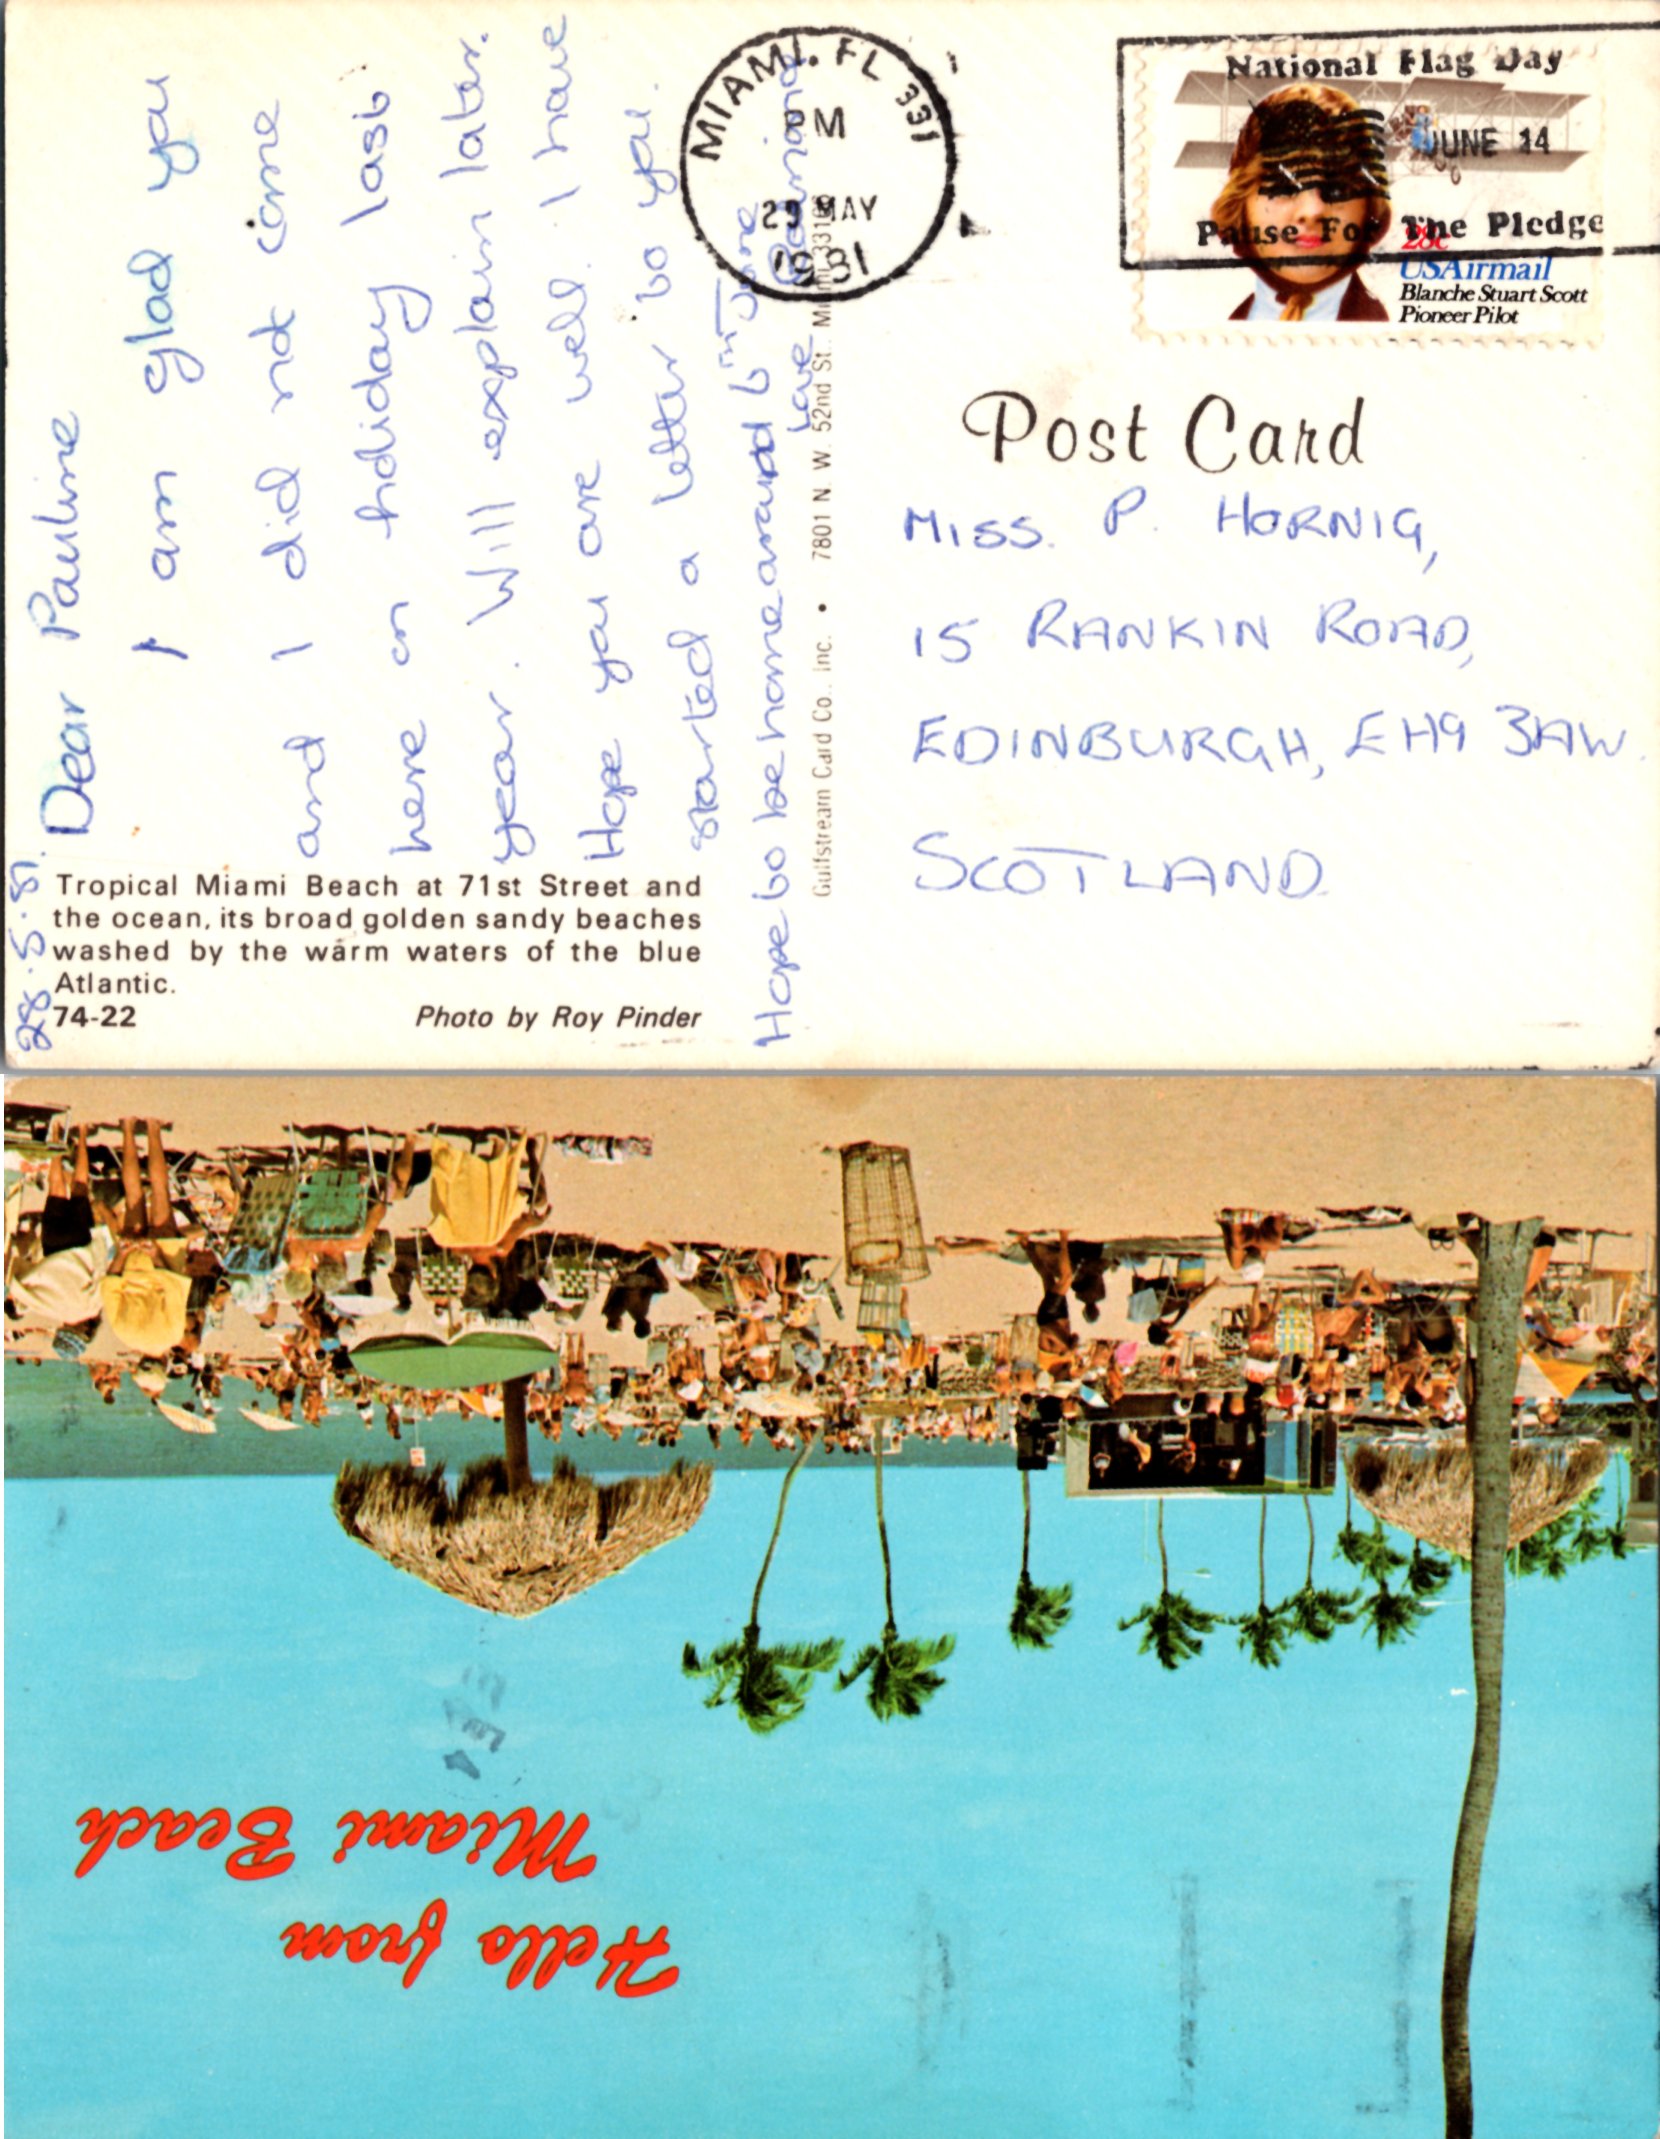 28.5.81.
Dear Pauline
I am glad you
and I did not come
here on holiday last
year. Will explain later.
Hope you are well. I have
started a letter to you.
Hope to be home around 6th June
Love
Tropical Miami Beach at 71st Street and
the ocean, its broad golden sandy beaches
washed by the warm waters of the blue
Atlantic.
74-22
Photo by Roy Pinder
Gulfstream Card Co., Inc. • 7801 N. W. 52nd St. Miami 33166
MIAMI. FL 331
PM
29 MAY
1981
National Flag Day
JUNE 14
Pause For The Pledge
28c
USAirmail
Blanche Stuart Scott
Pioneer Pilot
Post Card
MISS. P. HORNIG,
15 RANKIN ROAD,
EDINBURGH, EH9 3AW.
SCOTLAND.
Hello from
Miami Beach